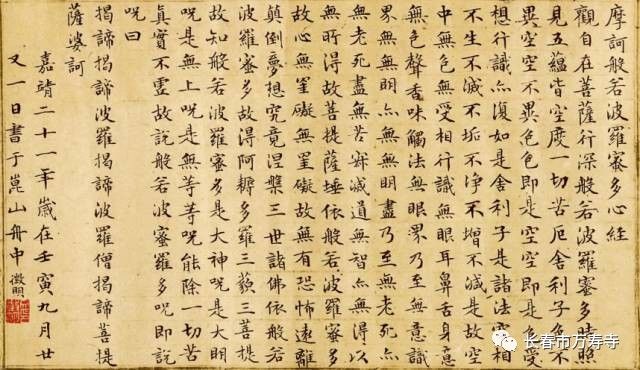 摩訶般若波羅蜜多心經
觀自在菩薩行深般若波羅蜜多時照
見五蘊皆空度一切苦厄舍利子色不
異空空不異色色即是空空即是色受
想行識亦復如是舍利子是諸法空相
不生不滅不垢不淨不增不減是故空
中無色無受相行識無眼耳鼻舌身意
無色聲香味觸法無眼界乃至無意識
界無無明亦無無明盡乃至無老死亦
無老死盡無苦寂滅道無智亦無得以
無所得故菩提薩埵依般若波羅蜜多
故心無罣礙無罣礙故無有恐怖遠離
顛倒夢想究竟涅槃三世諸佛依般若
波羅蜜多故得阿耨多羅三藐三菩提
故知般若波羅蜜多是大神呪是大明
呪是無上呪是無等等呪能除一切苦
真實不虛故說般若波羅蜜多呪即說
呪曰
揭諦揭諦波羅揭諦波羅僧揭諦菩提
薩婆訶
嘉靖二十一年歲在壬寅九月廿
又一日書于崑山舟中 徵明
长春市万寿寺